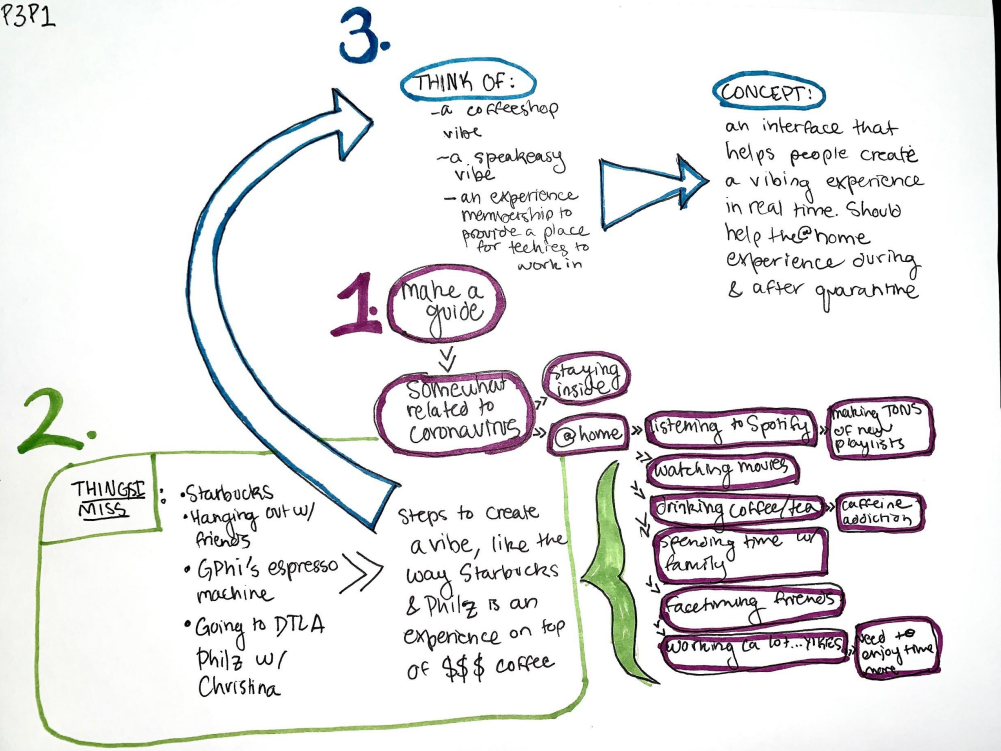 P3P1
3.
THINK OF:
- a coffeeshop
vibe
- a speakeasy
vibe
- an experience
membership to
provide a place
for techies to
work in
CONCEPT:
an interface that
helps people create
a vibing experience
in real time. Should
help the @home
experience during
& after quarantine
1.
make a
guide
somewhat
related to
coronavirus
staying
inside
@home
listening to Spotify
making TONS
of new
playlists
watching movies
drinking coffee/tea
caffeine
addiction
spending time w/
family
facetiming friends
working (a lot...yikes
need to
enjoy time
more
2.
THINGS I
MISS:
• Starbucks
• Hanging out w/
friends
• GPhi's espresso
machine
• Going to DTLA
Philz w/
Christina
steps to create
a vibe, like the
way Starbucks
& Philz is an
experience on top
of $$$ coffee